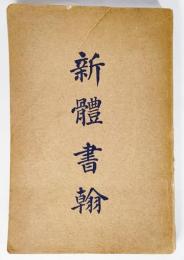 新體書翰